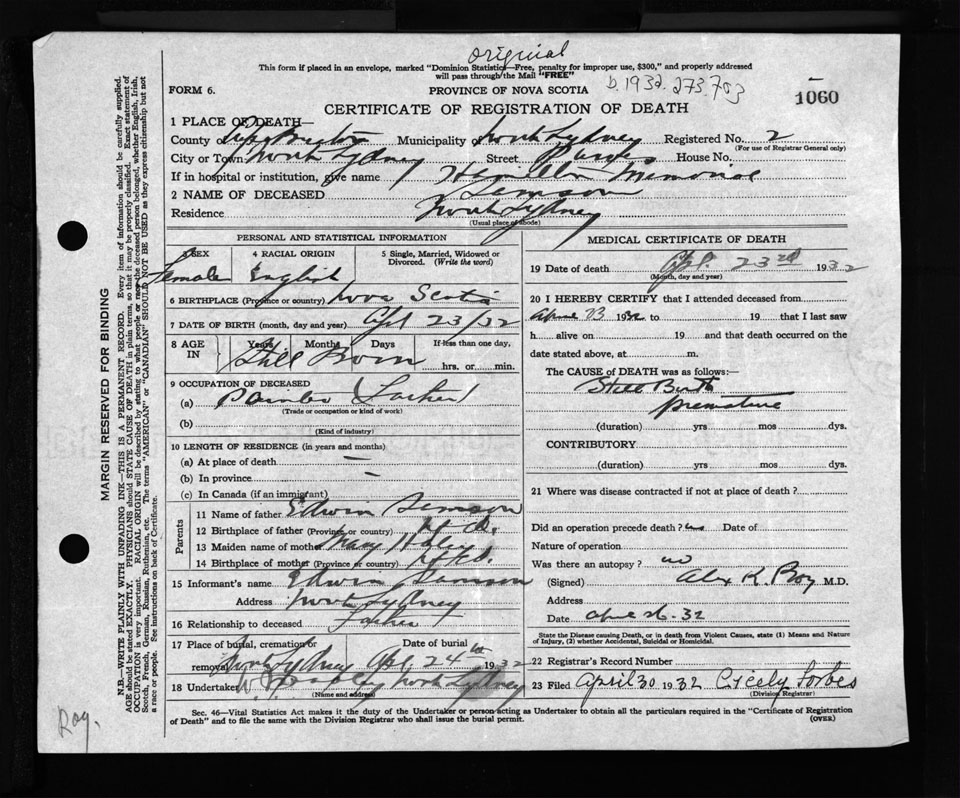 original
This form if placed in an envelope, marked "Dominion Statistics—Free, penalty for improper use, $300," and properly addressed
will pass through the Mail "FREE"
b. 1932. 273.703
FORM 6.
PROVINCE OF NOVA SCOTIA
1060
CERTIFICATE OF REGISTRATION OF DEATH
1 PLACE OF DEATH—
County Cape Breton Municipality North Sydney Registered No. 2
(For use of Registrar General only)
City or Town North Sydney Street House No.
If in hospital or institution, give name Hamilton Memorial
2 NAME OF DECEASED Samson
Residence North Sydney
(Usual place of abode)
PERSONAL AND STATISTICAL INFORMATION
3 SEX 4 RACIAL ORIGIN 5 Single, Married, Widowed or
Divorced. (Write the word)
Female English
6 BIRTHPLACE (Province or country) Nova Scotia
7 DATE OF BIRTH (month, day and year) Apl 23/32
8 AGE IN Years Months Days If less than one day,
Still Born hrs. or min.
9 OCCUPATION OF DECEASED
(a)
(Trade or occupation or kind of work)
(b)
(Kind of industry)
10 LENGTH OF RESIDENCE (in years and months)
(a) At place of death —
(b) In province —
(c) In Canada (if an immigrant)
Parents
11 Name of father Edwin Samson
12 Birthplace of father (Province or country)
13 Maiden name of mother Mary
14 Birthplace of mother (Province or country)
15 Informant's name Edwin Samson
Address North Sydney
16 Relationship to deceased Father
17 Place of burial, cremation or Date of burial
removal North Sydney Apl. 24th 1932
18 Undertaker North Sydney
(Name and address)
MEDICAL CERTIFICATE OF DEATH
19 Date of death Apl. 23rd 1932
(Month, day and year)
20 I HEREBY CERTIFY that I attended deceased from
April 23 1932 to 19 that I last saw
h alive on 19 and that death occurred on the
date stated above, at m.
The CAUSE of DEATH was as follows:
Still Birth
premature
(duration) yrs mos dys.
CONTRIBUTORY
(duration) yrs mos dys.
21 Where was disease contracted if not at place of death?
Did an operation precede death? no Date of
Nature of operation
Was there an autopsy? no
(Signed) Alex R. Roy M.D.
Address
Date April 26. 32
State the Disease causing Death, or in death from Violent Causes, state (1) Means and Nature
of Injury, (2) whether Accidental, Suicidal or Homicidal.
22 Registrar's Record Number
23 Filed April 30 1932 Cicely Forbes
(Division Registrar)
Sec. 46—Vital Statistics Act makes it the duty of the Undertaker or person acting as Undertaker to obtain all the particulars required in the "Certificate of Registration
of Death" and to file the same with the Division Registrar who shall issue the burial permit.
(OVER)
MARGIN RESERVED FOR BINDING
N.B.—WRITE PLAINLY WITH UNFADING INK—THIS IS A PERMANENT RECORD. Every item of information should be carefully supplied.
AGE should be stated EXACTLY. PHYSICIANS should STATE CAUSE OF DEATH in plain terms, so that it may be properly classified. Exact statement of
OCCUPATION is very important. RACIAL ORIGIN will be described by stating to what people or race the deceased person belonged, whether English, Irish,
Scotch, French, German, Russian, Ruthenian, etc. The terms "AMERICAN" or "CANADIAN" SHOULD NOT BE USED as they express citizenship but not
a race or people. See instructions on back of Certificate.
Roy.